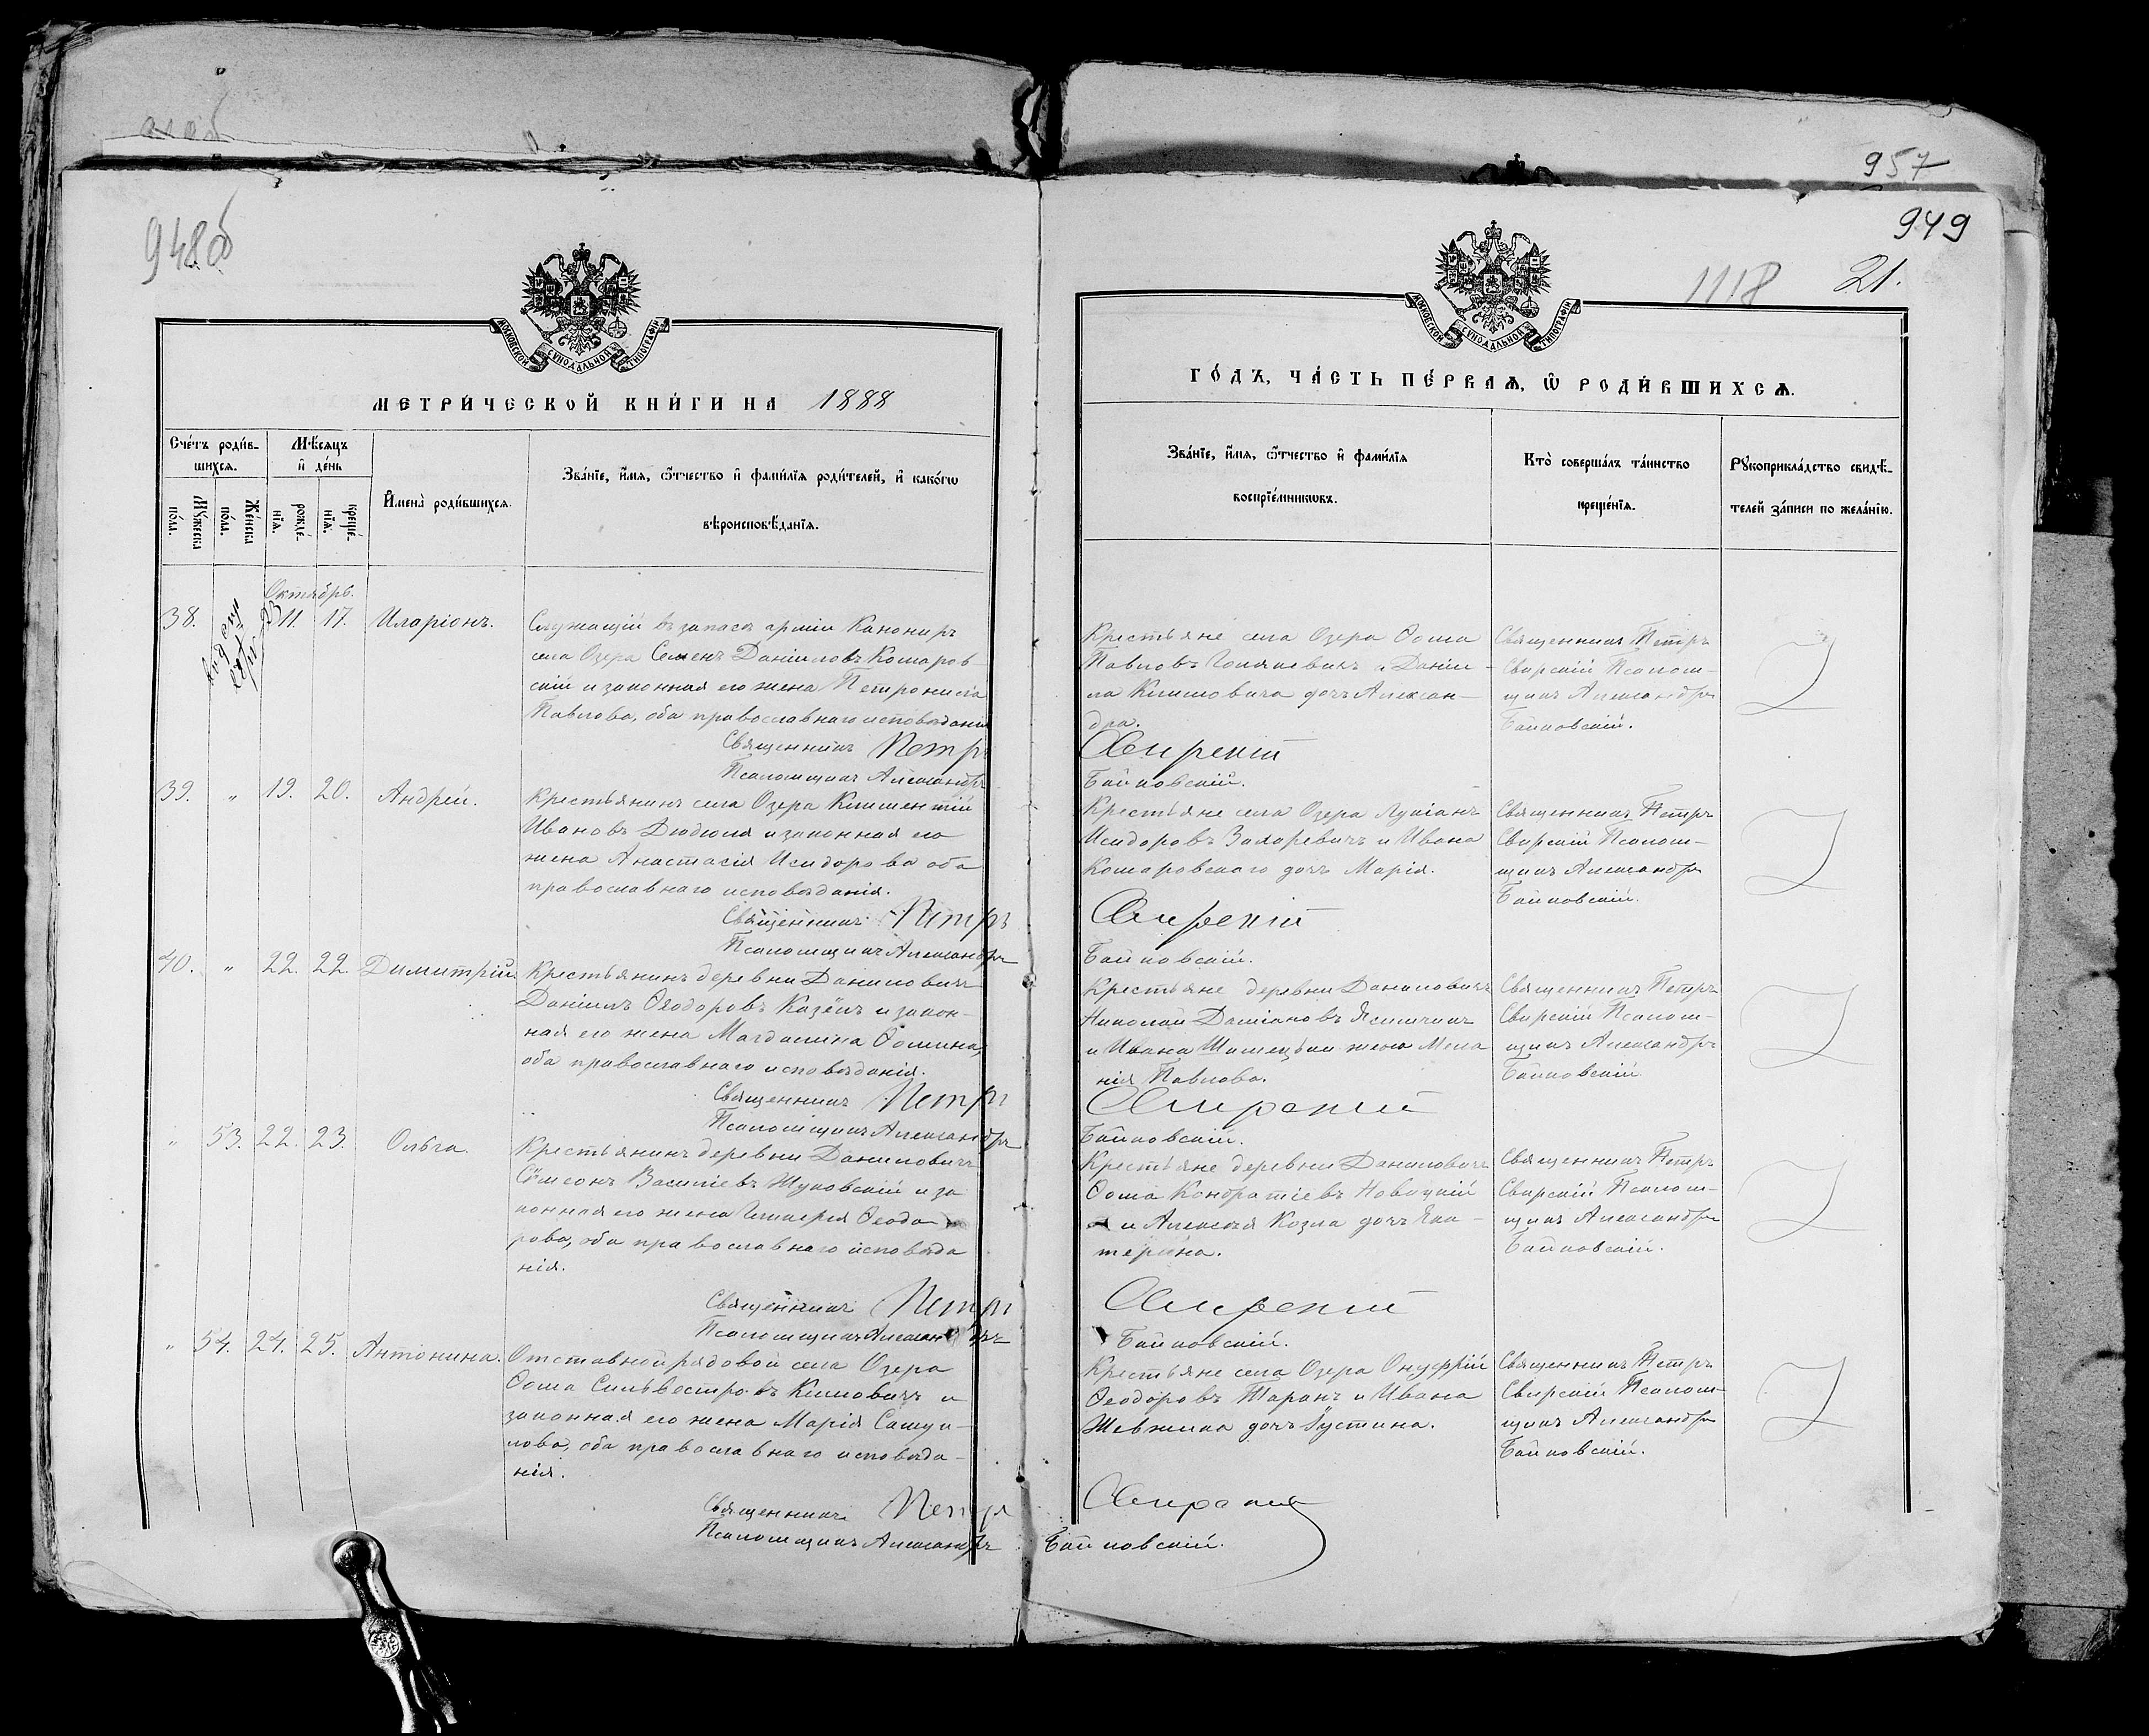 957
948об
949
1118
21.
МОСКОВСКОЙ СѴНОДАЛЬНОЙ ТИПОГРАФІИ
МЕТРИ́ЧЕСКОЙ КНИ́ГИ НА 1888
Сче́тъ роди́в-
шихсѧ.
Мѣ́сѧцъ
и҆ де́нь
Мꙋ́жеска
по́ла.
Же́нска
по́ла.
рожде́-
нїѧ.
креще́-
нїѧ.
И҆мена̀ роди́вшихсѧ.
Зва́нїе, и҆́мѧ, ѻ҆́тчество и҆ фами́лїѧ роди́телей, и҆ како́гѡ
вѣроисповѣ́данїѧ.
Октябрь.
38.
11.
17.
Иларіонъ.
Служащій въ запасѣ арміи Канониръ
села Озера Семенъ Даніиловъ Комаров-
скій и законная его жена Петронила
Павлова, оба православнаго исповѣданія
Священникъ Петръ
Псаломщикъ Александръ
39.
"
19.
20.
Андрей.
Крестьянинъ села Озера Климентій
Ивановъ Дюдюля и законная его
жена Анастасія Исидорова оба
православнаго исповѣданія.
Священникъ Петръ
Псаломщикъ Александръ
40.
"
22.
22.
Димитрій
Крестьянинъ деревни Даниловичъ
Даніилъ Ѳеодоровъ Казёлъ и закон-
ная его жена Магдалина Ѳомина,
оба православнаго исповѣданія.
Священникъ Петръ
Псаломщикъ Александръ
"
53.
22.
23.
Ольга.
Крестьянинъ деревни Даниловичъ
Сѷмеонъ Василіевъ Жуковскій и за
конная его жена Гликерія Ѳеодо
рова, оба православнаго исповѣда
нія.
Священникъ Петръ
Псаломщикъ Александръ
"
54.
24.
25.
Антонина.
Отставной рядовой села Озера
Ѳома Сильвестровъ Климовичъ и
законная его жена Марія Самуи-
лова, оба православнаго исповѣда-
нія.
Священникъ Петръ
Псаломщикъ Александръ
МОСКОВСКОЙ СѴНОДАЛЬНОЙ ТИПОГРАФІИ
ГО́ДЪ, ЧА́СТЬ ПЕ́РВАѦ, Ѡ҆ РОДИ́ВШИХСѦ.
Зва́нїе, и҆́мѧ, ѻ҆́тчество и҆ фами́лїѧ
воспрїе́мникѡвъ.
Кто̀ соверша́лъ та́инство
креще́нїѧ.
Рꙋкоприкла́дство свидѣ́-
телей за́писи по жела́нїю.
Крестьяне села Озера Ѳома
Павловъ и Даніи-
ла Климовича дочь Алексан-
дра.
Свирскій
Байковскій.
Священникъ Петръ
Свирскій Псалом-
щикъ Александръ
Байковскій.
Крестьяне села Озера Лукіанъ
Исидоровъ Захаревичъ и Ивана
Комаровскаго дочь Марія.
Свирскій
Байковскій.
Священникъ Петръ
Свирскій Псалом-
щикъ Александръ
Байковскій.
Крестьяне деревни Даниловичъ
Николай Даміановъ
и Ивана жена Мела
нія Павлова.
Свирскій
Байковскій.
Священникъ Петръ
Свирскій Псалом-
щикъ Александръ
Байковскій
Крестьяне деревни Даниловичъ
Ѳома Кондратіевъ Новицкій
и Алексѣя Козла дочь Ека-
терина.
Свирскій
Байковскій.
Священникъ Петръ
Свирскій Псалом-
щикъ Александръ
Байковскій.
Крестьяне села Озера Онуфрій
Ѳеодоровъ Таранъ и Ивана
Шевчика дочь Іустина.
Свирскій
Байковскій.
Священникъ Петръ
Свирскій Псалом-
щикъ Александръ
Байковскій.